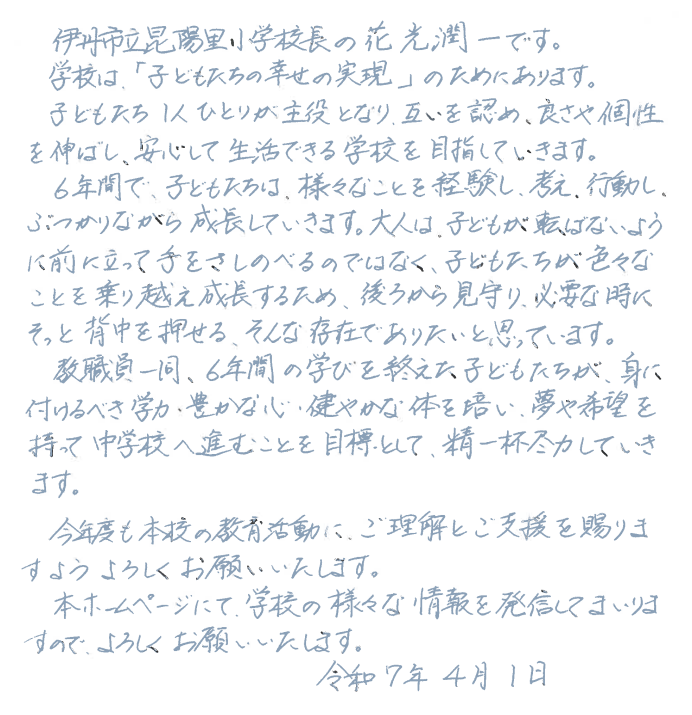 伊丹市立昆陽里小学校長の花光潤一です。
学校は、「子どもたちの幸せの実現」のためにあります。
子どもたち1人ひとりが主役となり、互いを認め、良さや個性
を伸ばし、安心して生活できる学校を目指していきます。
6年間で、子どもたちは、様々なことを経験し、考え、行動し、
ぶつかりながら成長していきます。大人は、子どもが転ばないよう
に前に立って手をさしのべるのではなく、子どもたちが色々な
ことを乗り越え成長するため、後ろから見守り、必要な時に
そっと背中を押せる、そんな存在でありたいと思っています。
教職員一同、6年間の学びを終えた子どもたちが、身に
付けるべき学力・豊かな心・健やかな体を培い、夢や希望を
持って中学校へ進むことを目標として、精一杯尽力していき
ます。
今年度も本校の教育活動に、ご理解とご支援を賜りま
すようよろしくお願いいたします。
本ホームページにて、学校の様々な情報を発信してまいりま
すので、よろしくお願いいたします。
令和7年4月1日